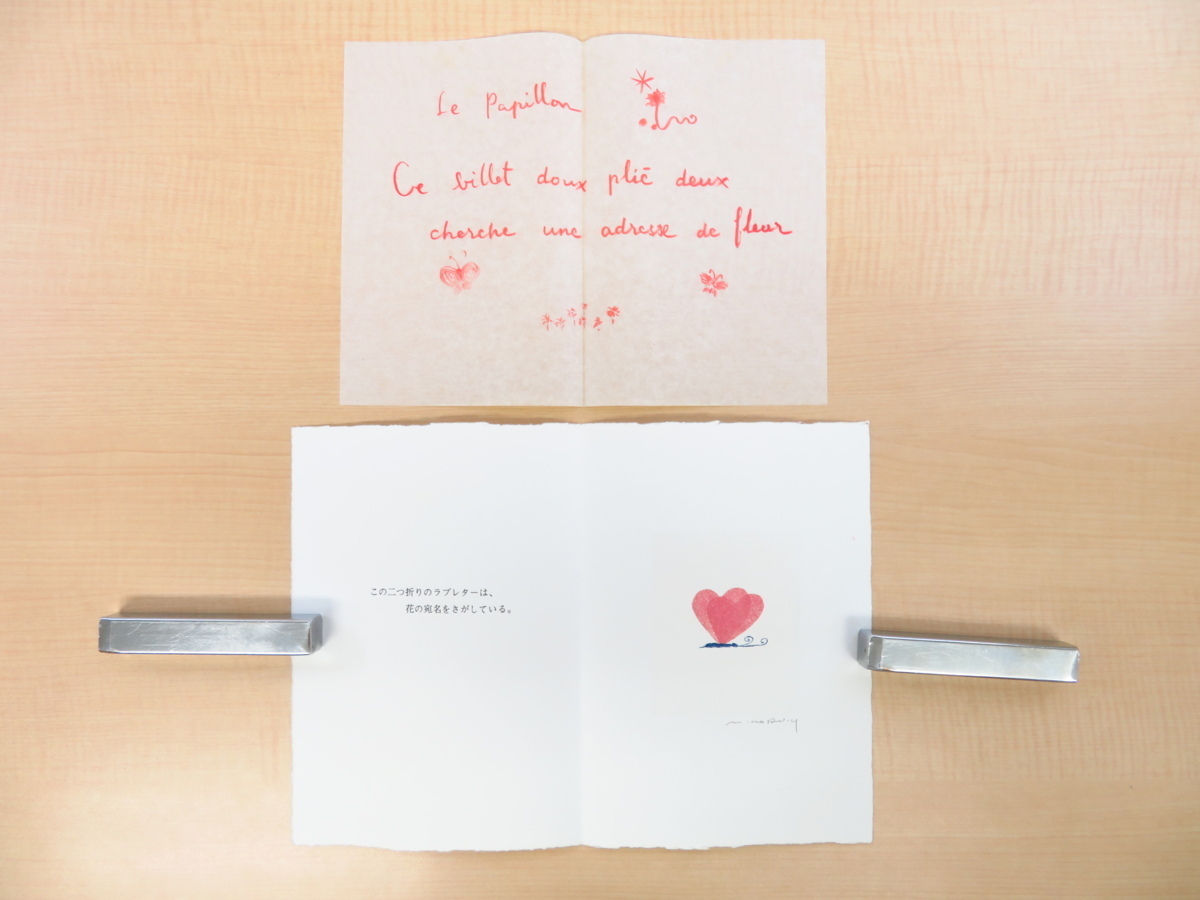 Le Papillon
Ce billet doux plié deux
cherche une adresse de fleur
この二つ折りのラブレターは、
花の宛名をさがしている。